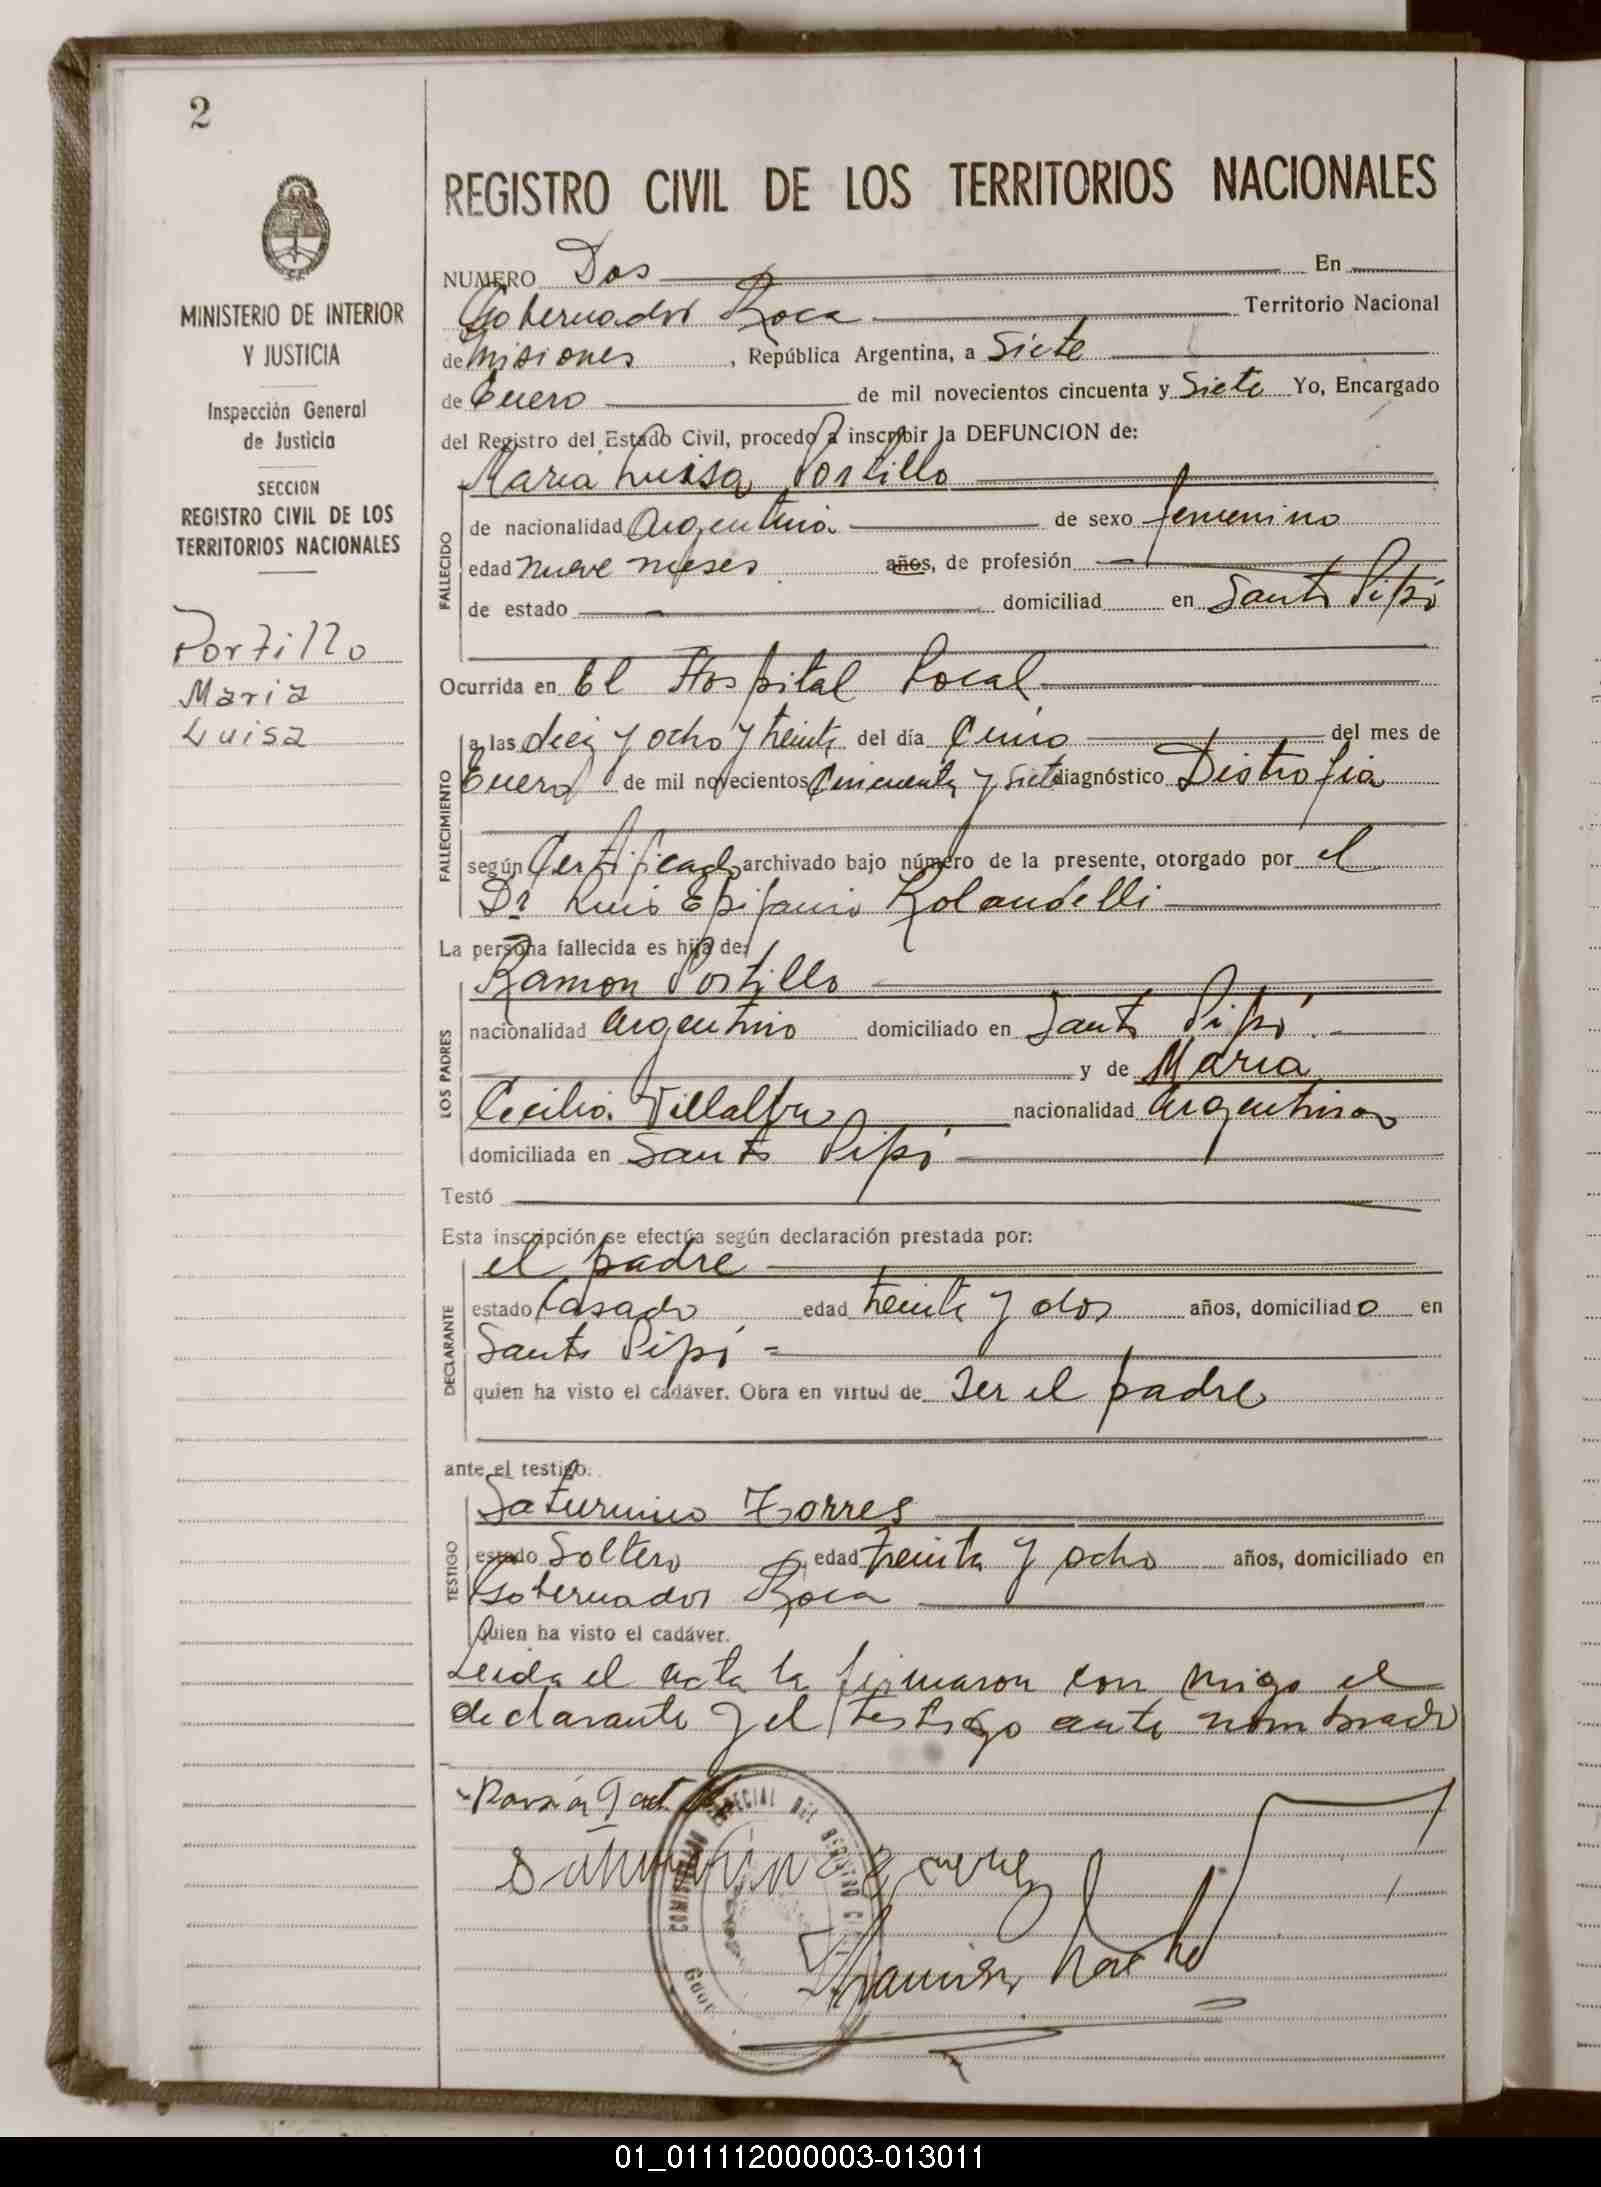 2
MINISTERIO DE INTERIOR
Y JUSTICIA
Inspección General
de Justicia
SECCION
REGISTRO CIVIL DE LOS
TERRITORIOS NACIONALES
Portillo
Maria
Luisa
REGISTRO CIVIL DE LOS TERRITORIOS NACIONALES
NUMERO Dos En
Gobernador Roca Territorio Nacional
de Misiones, República Argentina, a Siete
de Enero de mil novecientos cincuenta y Siete Yo, Encargado
del Registro del Estado Civil, procedo a inscribir la DEFUNCION de:
Maria Luisa Portillo
FALLECIDO
de nacionalidad Argentina de sexo femenino
edad nueve meses años, de profesión
de estado domiciliad en Santo Pipó
Ocurrida en El Hospital Local
FALLECIMIENTO
a las diez y ocho y treinta del día Cinco del mes de
Enero de mil novecientos Cincuenta y Siete diagnóstico Distrofia
según Certificado archivado bajo número de la presente, otorgado por el
Dr Luis Epifanio Rolandelli
La persona fallecida es hija de:
LOS PADRES
Ramon Portillo
nacionalidad Argentino domiciliado en Santo Pipó
y de Maria
Cecilia Villalba nacionalidad Argentina
domiciliada en Santo Pipó
Testó
Esta inscripción se efectúa según declaración prestada por:
DECLARANTE
el padre
estado Casado edad treinta y dos años, domiciliado en
Santo Pipó
quien ha visto el cadáver. Obra en virtud de Ser el padre
ante el testigo:
TESTIGO
Saturnino Torres
estado Soltero edad treinta y ocho años, domiciliado en
Gobernador Roca
Quien ha visto el cadáver.
Leida el acta la firmaron con migo el
declarante y el testigo ante nombrado
COMISARIADO ESPECIAL DEL REGISTRO
01_011112000003-013011